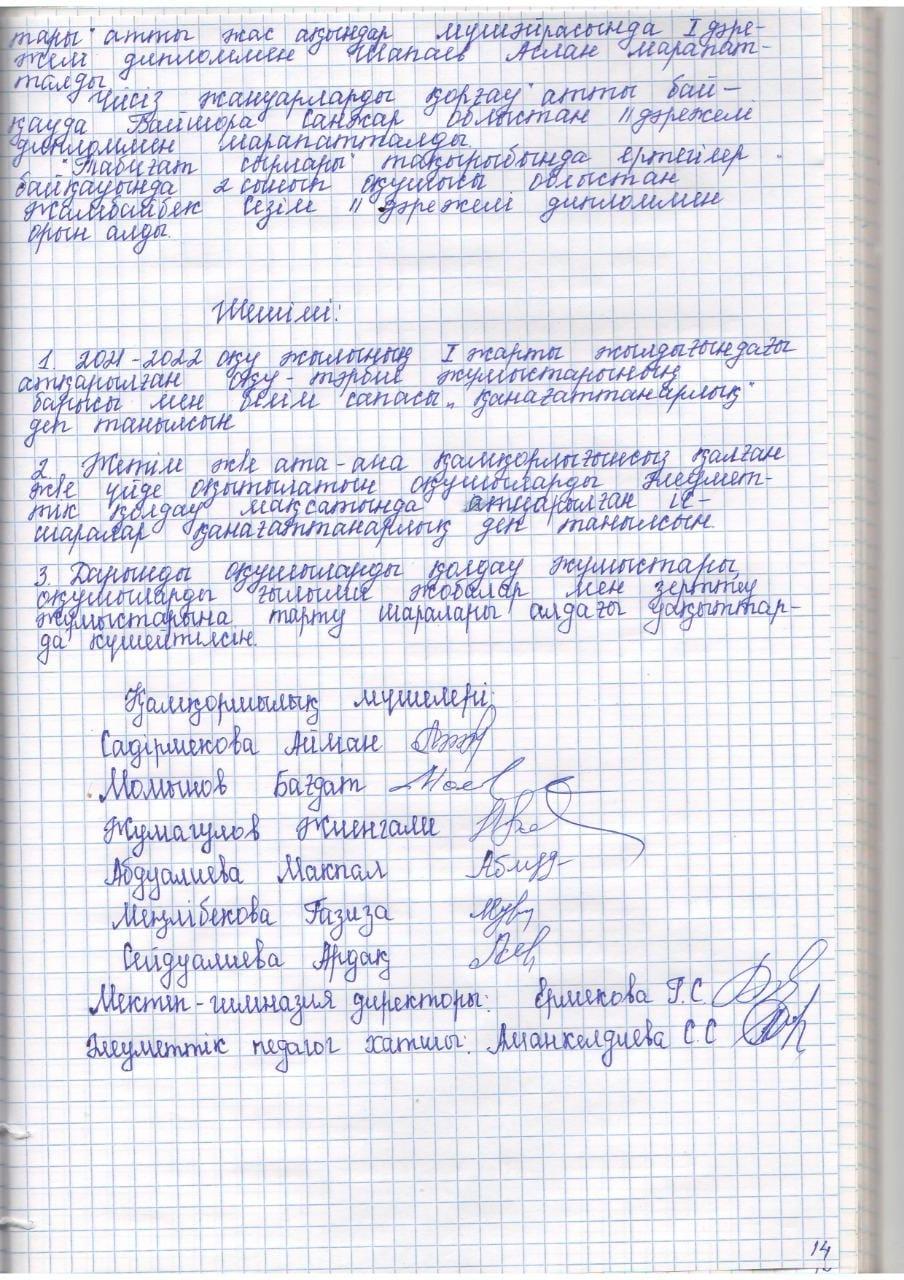 тары" атты жас ақындар мүшәйрасында I дәре-
желі дипломмен Шапаев Аслан марапат-
талды.
"Үйсіз жануарларды қорғау" атты бай-
қауда Байшора Санжар облыстан II дәрежелі
дипломмен марапатталды.
"Табиғат сырлары" тақырыбында ертегілер
байқауында 2 сынып оқушысы облыстан
Жамбайбек Сезім II дәрежелі дипломмен
орын алды.
Шешімі:
1. 2021-2022 оқу жылының I жарты жылдығындағы
атқарылған оқу-тәрбие жұмыстарының
барысы мен білім сапасы "қанағаттанарлық"
деп танылсын
2. Жетім ж/е ата-ана қамқорлығынсыз қалған
ж/е үйде оқытылатын оқушыларды әлеумет-
тік қолдау мақсатында атқарылған іс-
шаралар қанағаттанарлық деп танылсын.
3. Дарынды оқушыларды қолдау жұмыстары,
оқушыларды ғылыми жобалар мен зерттеу
жұмыстарына тарту шаралары алдағы уақыттар-
да күшейтілсін.
Қамқоршылық мүшелері:
Садірмекова Айман
Момынов Бағдат
Жумагулов Жиенгали
Абдуалиева Макпал
Меңлібекова Газиза
Сейдуалиева Ардақ
Мектеп-гимназия директоры: Ермекова Г.С
Әлеуметтік педагог хатшы: Аманкелдиева С.С
14